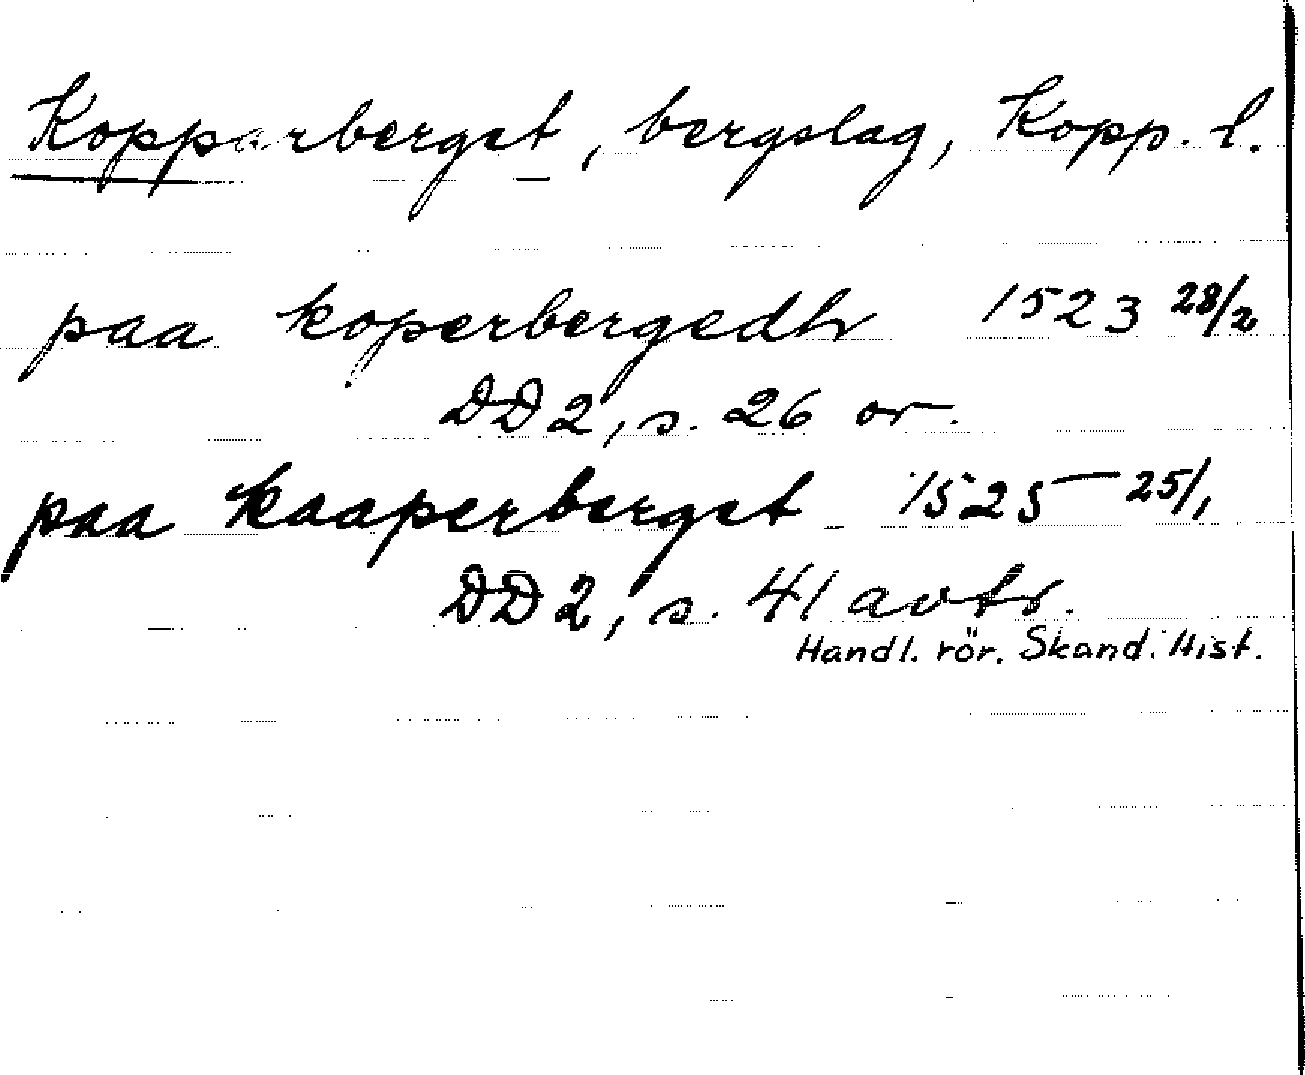 Kopparberget, bergslag, Kopp. l.
paa koperbergedh 1523 28/2
DD 2, s. 26 or.
paa kaaperberget 1525 25/1
DD 2, s. 41 avtr.
Handl. rör. Skand. Hist.